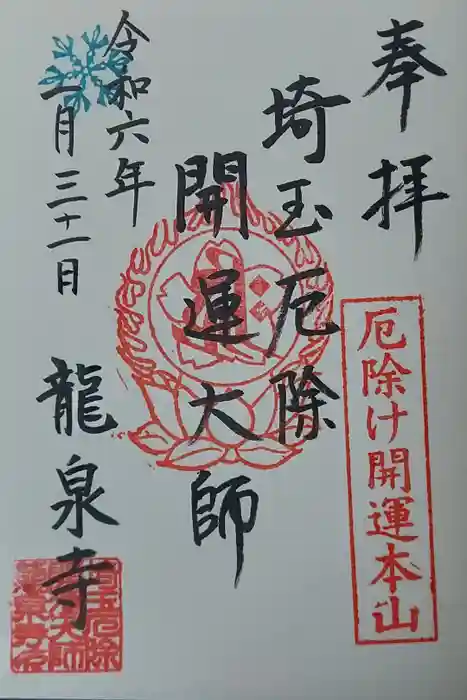 奉拝
厄除け開運本山
埼玉厄除
開運大師
令和六年
一月三十一日
龍泉寺